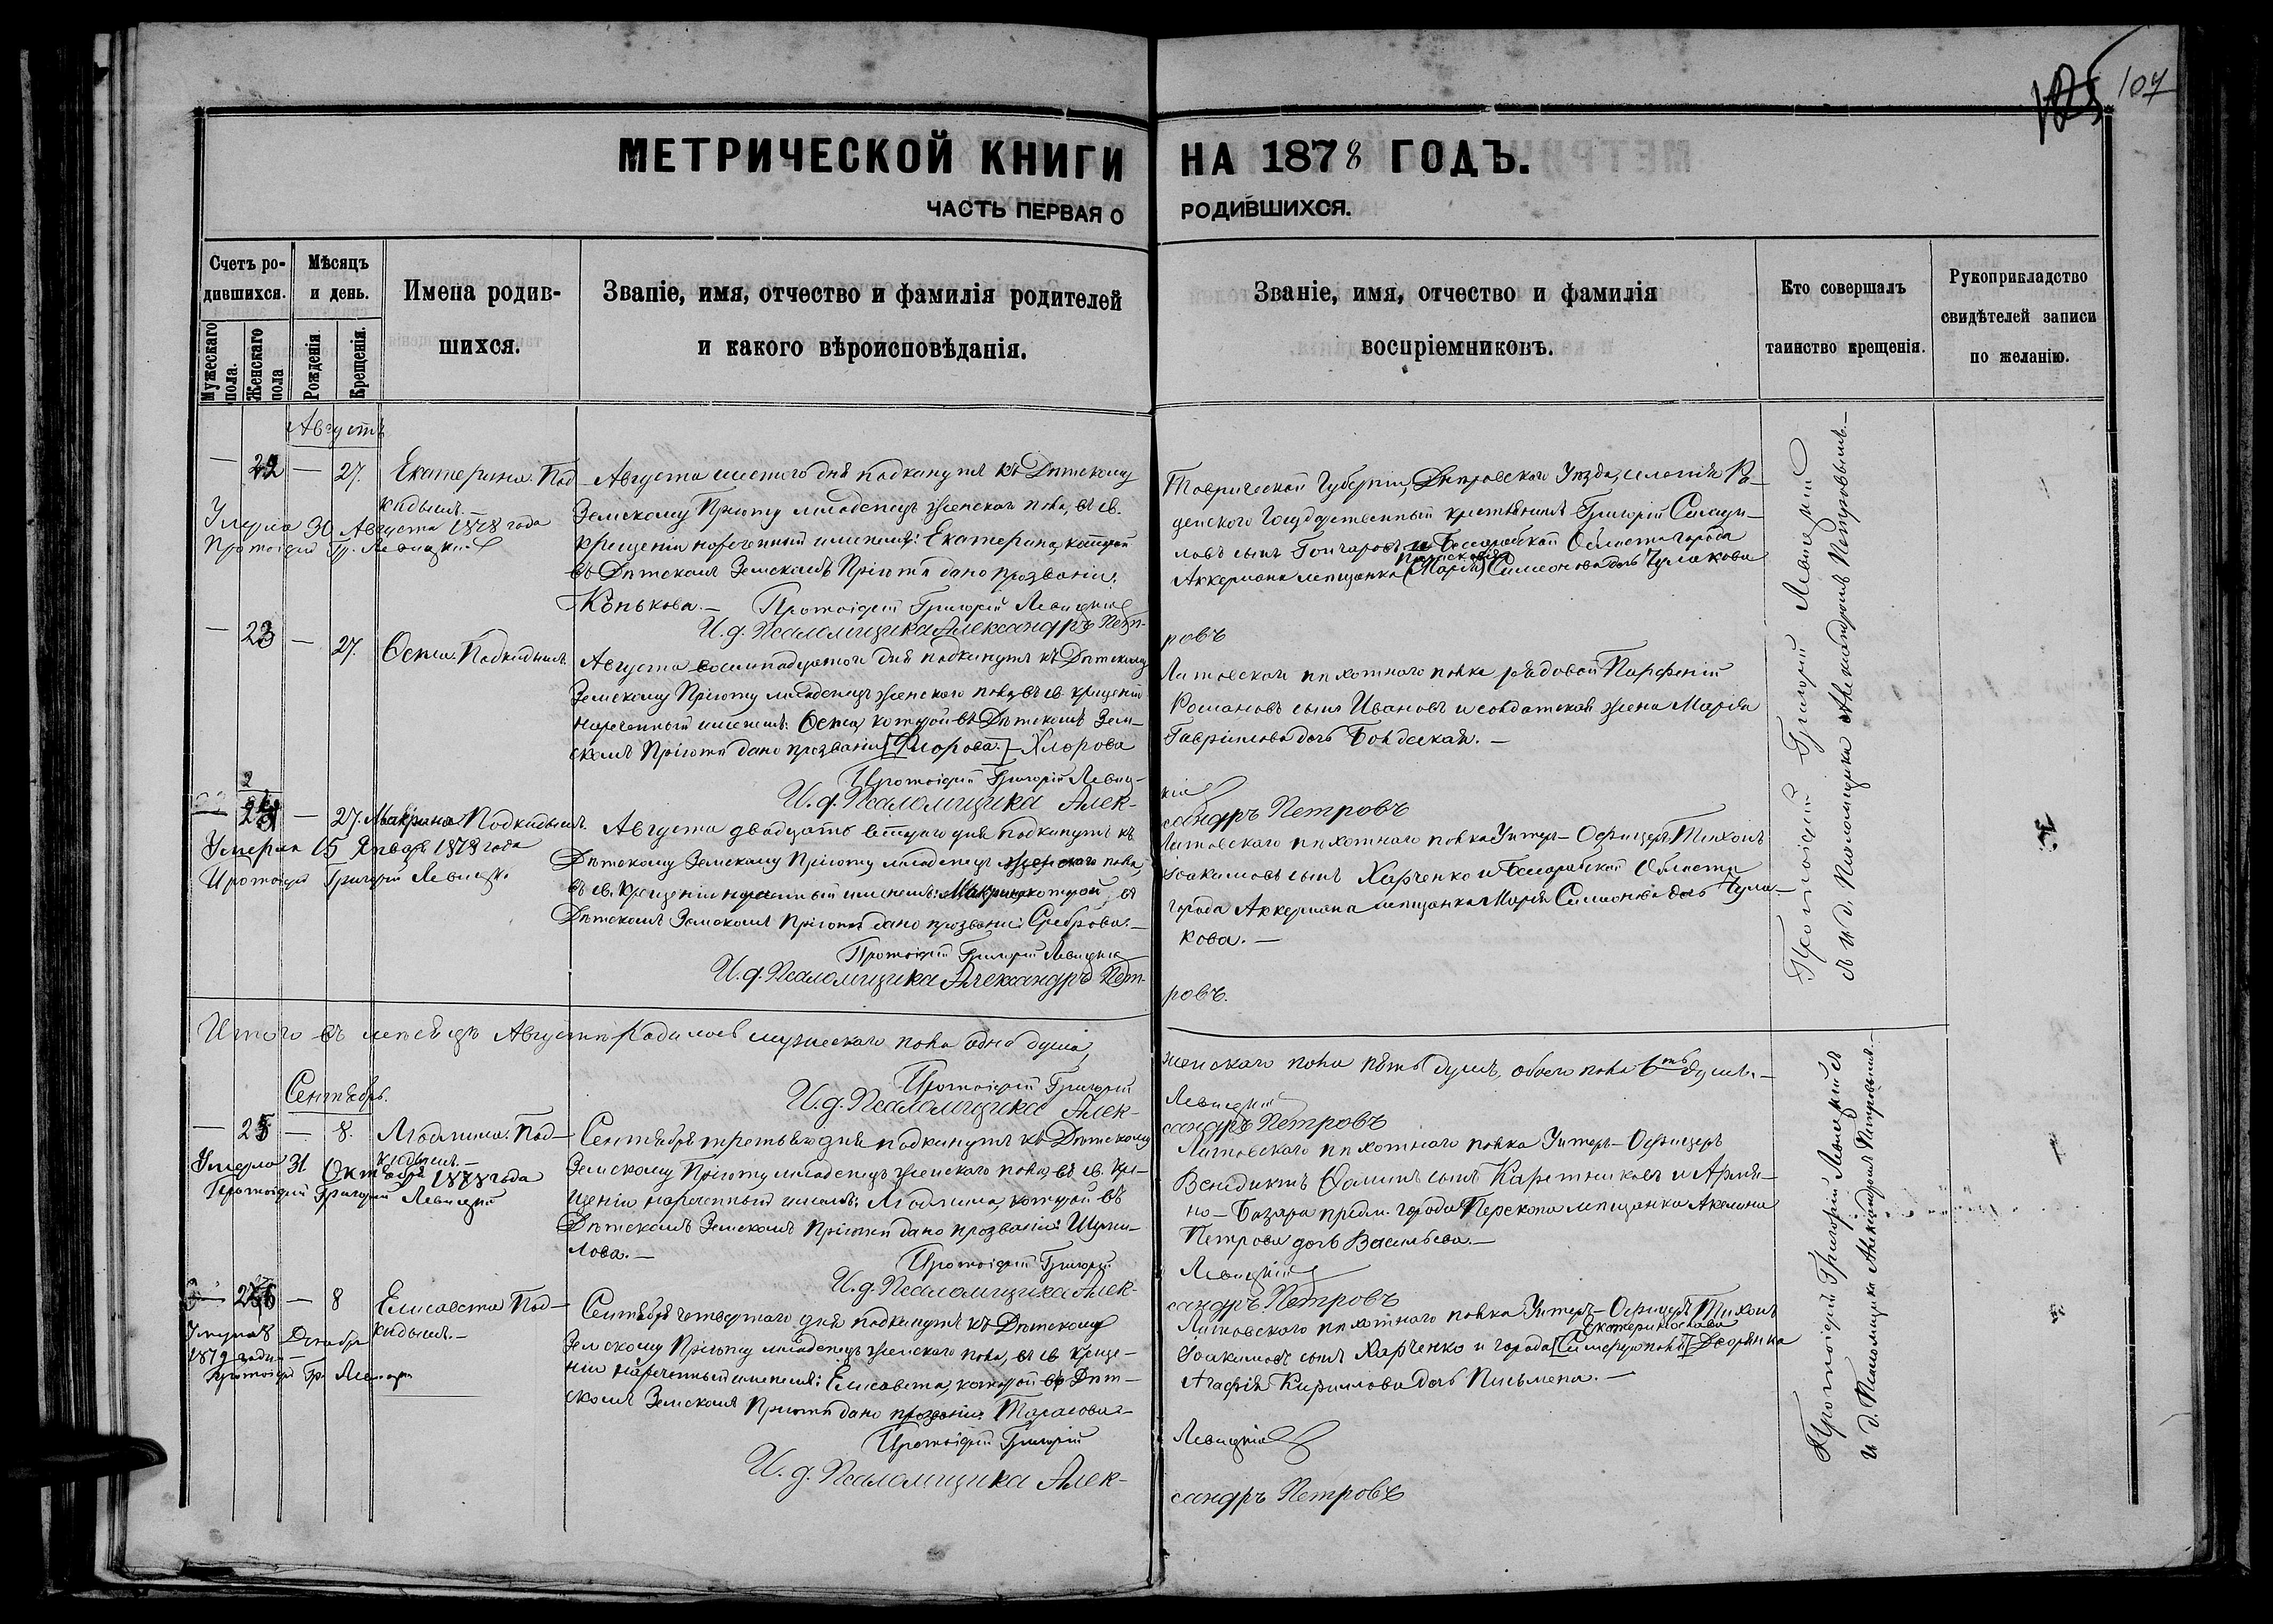 107
МЕТРИЧЕСКОЙ КНИГИ НА 1878 ГОДЪ.
ЧАСТЬ ПЕРВАЯ О РОДИВШИХСЯ.
Счетъ родившихся.
Мужескаго пола.
Женскаго пола
Мѣсяцъ и день.
Рожденія.
Крещенія.
Имена родившихся.
Званіе, имя, отчество и фамилія родителей
и какого вѣроисповѣданія.
Званіе, имя, отчество и фамилія
воспріемниковъ.
Кто совершалъ
таинство крещенія.
Рукоприкладство
свидѣтелей записи
по желанію.
Августъ
— 22 — 27. Екатерина. Под-
кидышъ.—
Умерла 30 Августа 1878 года
Протоіерей Гр. Левицкій
Августа шестого дня подкинутъ къ Дѣтскому
Земскому Пріюту младенецъ женскаго пола, въ св.
крещеніи нареченный именемъ: Екатерина, которой
въ Дѣтскомъ Земскомъ Пріютѣ дано прозваніе:
Конькова.— Протоіерей Григорій Левицкій
И. д. Псаломщика Александръ Пет-
Таврической Губерніи, Днѣпровскаго Уѣзда, селенія
Государственный крестьянинъ Григорій
сынъ Гончаровъ и Бессарабской Области города
Параскевія
Аккермана мещанка (Марія) Симеонова дочь Чумакова
ровъ
— 23 — 27. Подкидышъ.
Августа восемнадцатаго дня подкинутъ къ Дѣтскому
Земскому Пріюту младенецъ женскаго пола, въ св. крещеніи
нареченный именемъ: которой въ Дѣтскомъ Зем-
скомъ Пріютѣ дано прозваніе [Флорова.] Хлорова
Протоіерей Григорій Левиц-
И. д. Псаломщика Алек-
Литовскаго пѣхотнаго полка рядовой Парфеній
Романовъ сынъ Ивановъ и солдатская жена Марія
Гавріилова дочь —
кій
сандръ Петровъ
— 24 — 27. Макрина Подкидышъ.
Умерла 15 Января 1878 года
Протоіерей Григорій Левицкій
Августа двадцать втораго дня подкинутъ къ
Дѣтскому Земскому Пріюту младенецъ женскаго пола,
въ св. крещеніи нареченный именемъ: Макрина которой въ
Дѣтскомъ Земскомъ Пріютѣ дано прозваніе: Среброва.—
Протоіерей Григорій Левицкій
И. д. Псаломщика Александръ Пет-
Литовскаго пѣхотнаго полка Унтеръ-Офицеръ Тихонъ
Іоакимовъ сынъ Харченко и Бессарабской Области
города Аккермана мещанка Марія Симеонова дочь Чума-
кова.—
ровъ.
Протоіерей Григорій Левицкій
съ и. д. Псаломщика Александромъ Петровымъ.—
Итого въ мѣсяцѣ Августѣ родилось мужескаго пола одна душа,
женскаго пола пять душъ, обоего пола 6ть душъ.—
Протоіерей Григорій
И. д. Псаломщика Алек-
Левицкій
сандръ Петровъ
Сентябрь.
— 25 — 8. Под-
кидышъ.—
Умерла 31 Октября 1878 года
Протоіерей Григорій Левицкій
Сентября третьяго дня подкинутъ къ Дѣтскому
Земскому Пріюту младенецъ женскаго пола, въ св. кре-
щеніи нареченный именемъ: которой въ
Дѣтскомъ Земскомъ Пріютѣ дано прозваніе: Шуми-
лова.—
Протоіерей Григорій
И. д. Псаломщика Алек-
Литовскаго пѣхотнаго полка Унтеръ-Офицеръ
Венедиктъ Ѳоминъ сынъ Каретниковъ и Армян-
но-Базара предм. города Перекопа мещанка Акилина
Петрова дочь Васильева.—
Левицкій
сандръ Петровъ
— 26 — 8 Елисавета Под-
кидышъ.—
Умерла 8
1879 года
Протоіерей Гр. Левицкій
Сентября четвертаго дня подкинутъ къ Дѣтскому
Земскому Пріюту младенецъ женскаго пола, въ св. креще-
ніи нареченный именемъ: Елисавета, которой въ Дѣт-
скомъ Земскомъ Пріютѣ дано прозваніе: Тарасова—
Протоіерей Григорій
И. д. Псаломщика Алек-
Литовскаго пѣхотнаго полка Унтеръ-Офицеръ Тихонъ
Екатеринослава
Іоакимовъ сынъ Харченко и города [Симферополя] Дворянка
Агафія Кириллова дочь Письмена.—
Левицкій
сандръ Петровъ
Протоіерей Григорій Левицкій съ
и. д. Псаломщика Александромъ Петровымъ.—